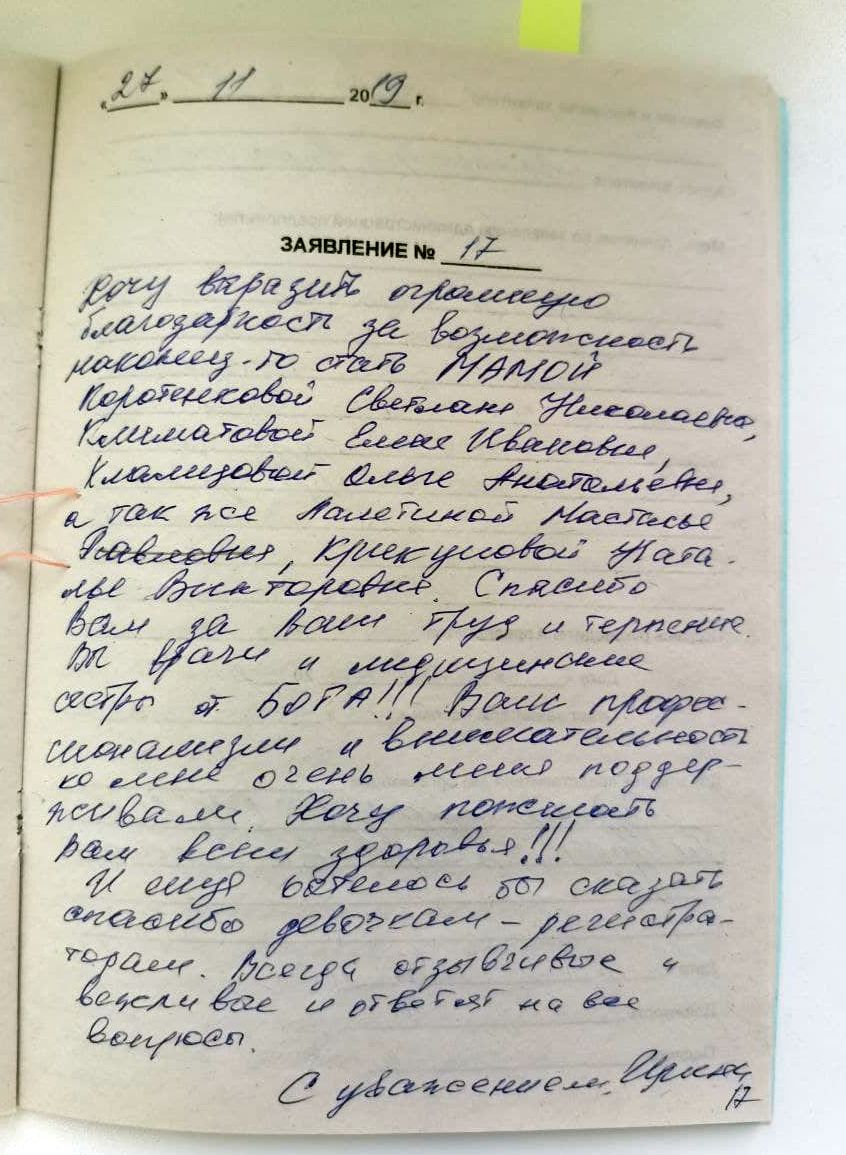 «27» 11 2019 г.
ЗАЯВЛЕНИЕ № 17
Хочу выразить огромную
благодарность за возможность
наконец-то стать МАМОЙ
Коротенковой Светлане Николаевне,
Климатовой Елене Ивановне,
Хламцовой Ольге Анатольевне,
а так же Палетиной Настасье
Павловне, Крикуновой Ната-
лье Викторовне. Спасибо
Вам за Ваш труд и терпение.
Вы врачи и медицинские
сестры от БОГА!!! Ваш профес-
сионализм и внимательность
ко мне очень меня поддер-
живали. Хочу пожелать
Вам всем здоровья!!!
И ещё хотелось бы сказать
спасибо девочкам - регистра-
торам. Всегда отзывчивые и
вежливые и ответят на все
вопросы.
С уважением, Ирина
17